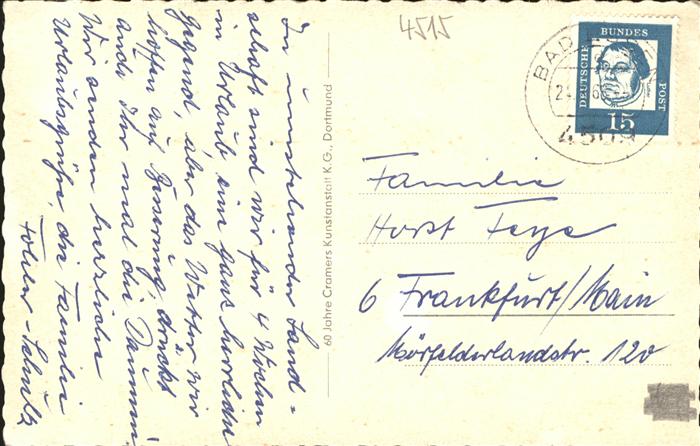 4515
DEUTSCHE BUNDES POST
15
BAD
4509
In umstehender Land=
schaft sind wir für 4 Wochen
im Urlaub eine ganz herrliche
Gegend, aber das Wetter wir
hoffen auf Besserung drückt
auch Ihr mal die Daumen
Wir senden herzliche
Urlaubsgrüße, die Familie
60 Jahre Cramers Kunstanstalt K.G., Dortmund
Familie
Horst Feye
6 Frankfurt/Main
Mörfelderlandstr. 120